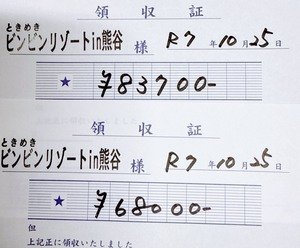 領収証
ときめき
ピンピンリゾートin熊谷 様 R7年10月25日
★ ¥83700-
上記正に領収いたしました
領収証
ときめき
ピンピンリゾートin熊谷 様 R7年10月25日
★ ¥68000-
但
上記正に領収いたしました